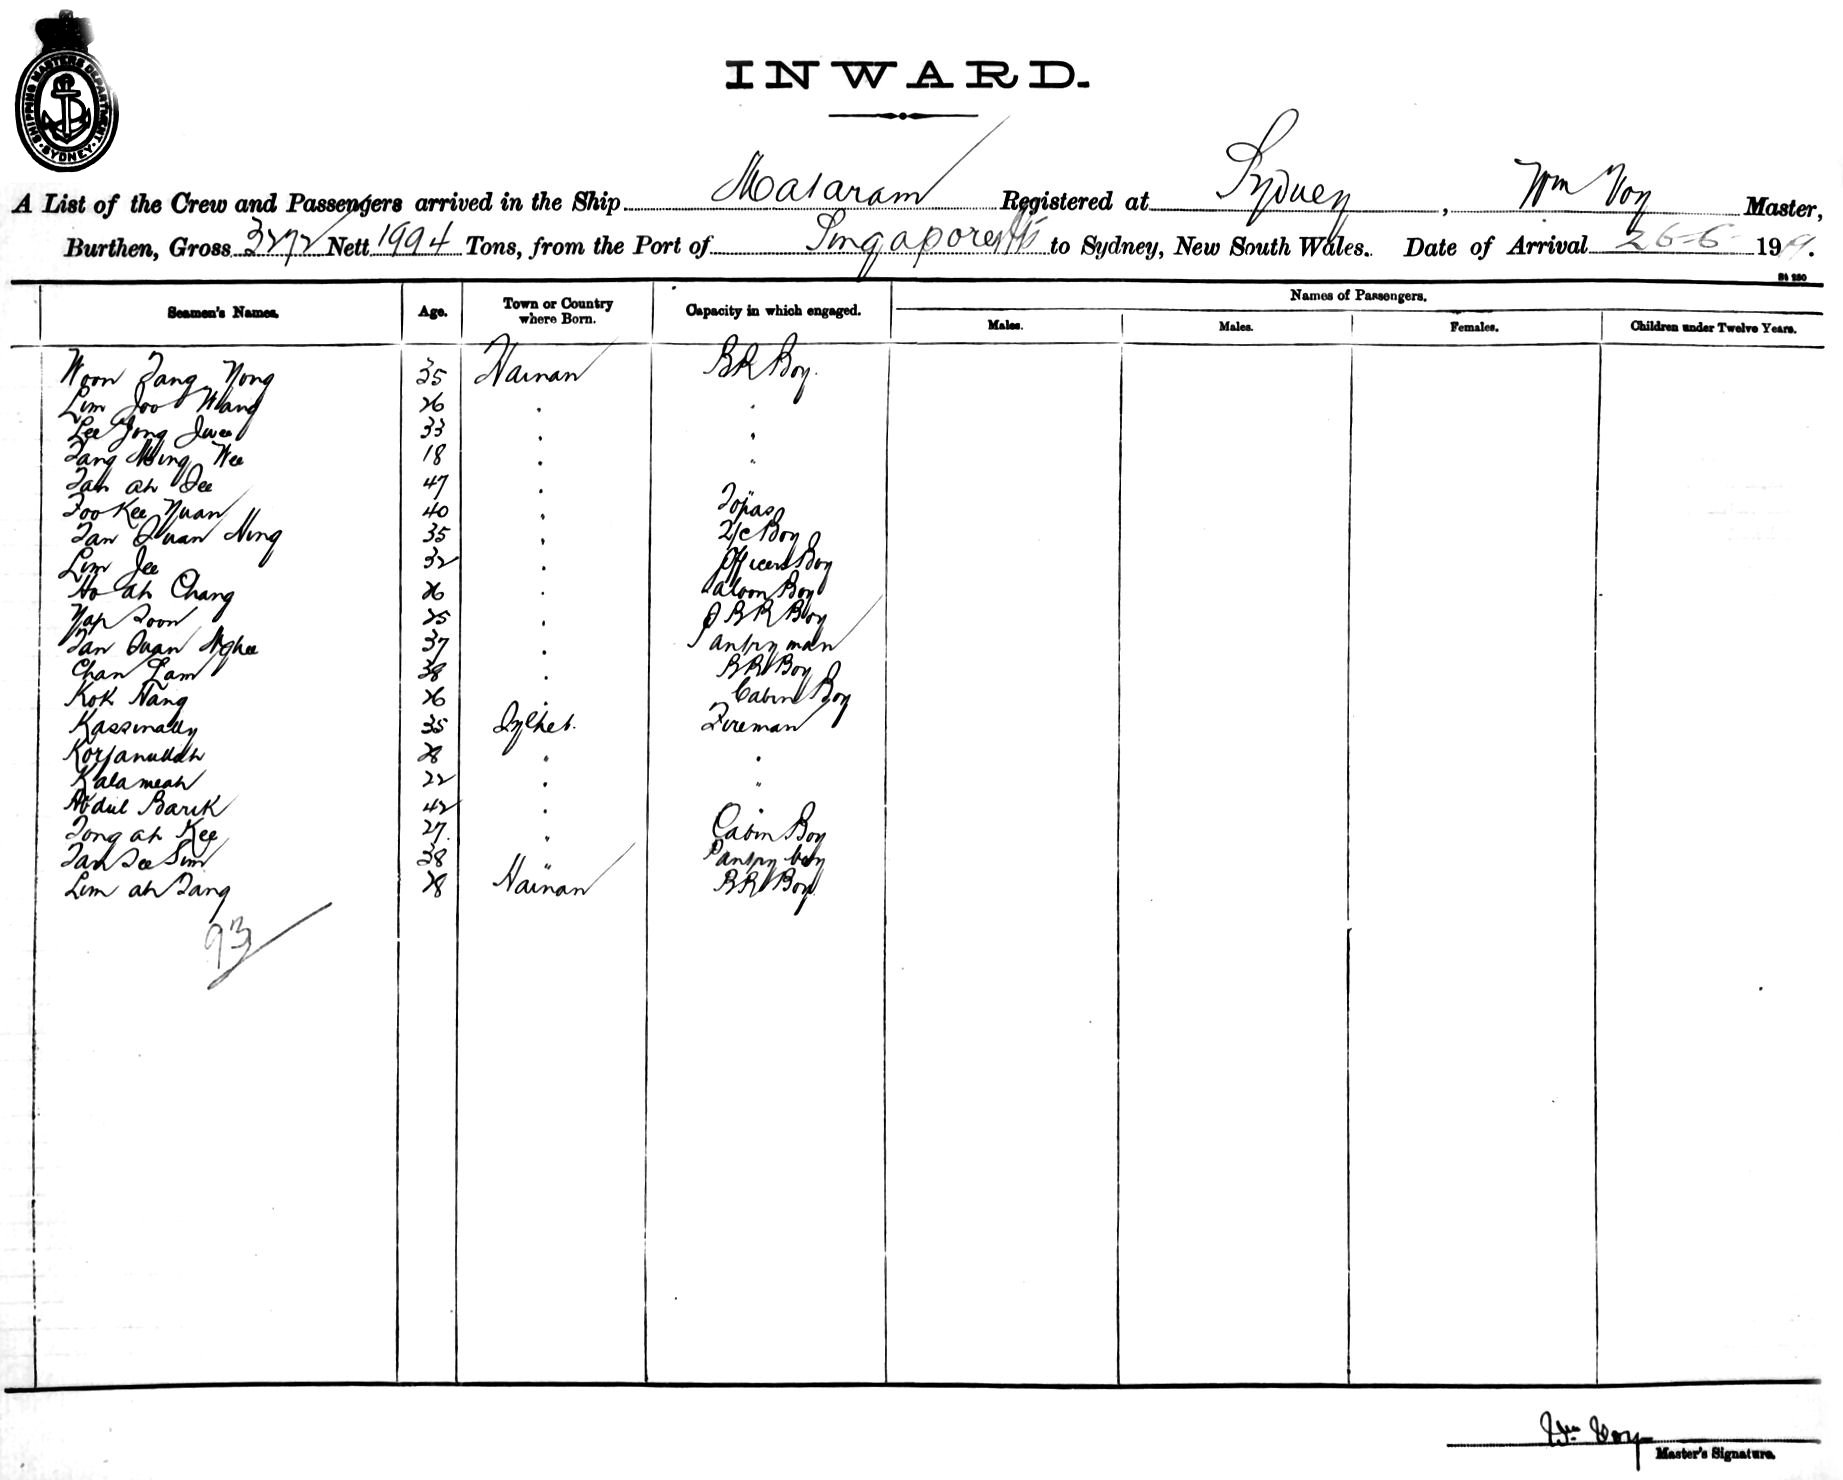 SHIPPING MASTERS DEPARTMENT · SYDNEY ·
INWARD.
A List of the Crew and Passengers arrived in the Ship Mataram Registered at Sydney, Wm Voy Master,
Burthen, Gross 3272 Nett 1994 Tons, from the Port of Singapore to Sydney, New South Wales. Date of Arrival 26-6-1919.
St 280
Names of Passengers.
Seamen's Names. Age. Town or Country where Born. Capacity in which engaged. Males. Males. Females. Children under Twelve Years.
Woon Tang Yong 35 Hainan BR Boy.
Lim Joo Wang 26 " "
Lee Yong Jwee 33 " "
Tang Ming Wee 18 " "
Tan ah See 47 "
Foo Kee Yuan 40 " Topas
Tan Quan Hing 35 " 2/c Boy
Lim Jee 32 " Officers Boy
Ho ah Chang 26 " Saloon Boy
Yap Soon 25 " BR Boy
Tan Juan Nghee 37 " Pantry man
Chan Lam 38 " BR Boy
Kok Nang 26 " Cabin Boy
Kassinally 35 Sylhet. Fireman
Korjanullah 28 " "
Kalameah 22 " "
Abdul Barik 42 " "
Tong ah Kee 27 " Cabin Boy
Tan See Sim 38 " Pantry boy
Lim ah Tang 28 Hainan BR Boy
93
Wm Voy
Master's Signature.